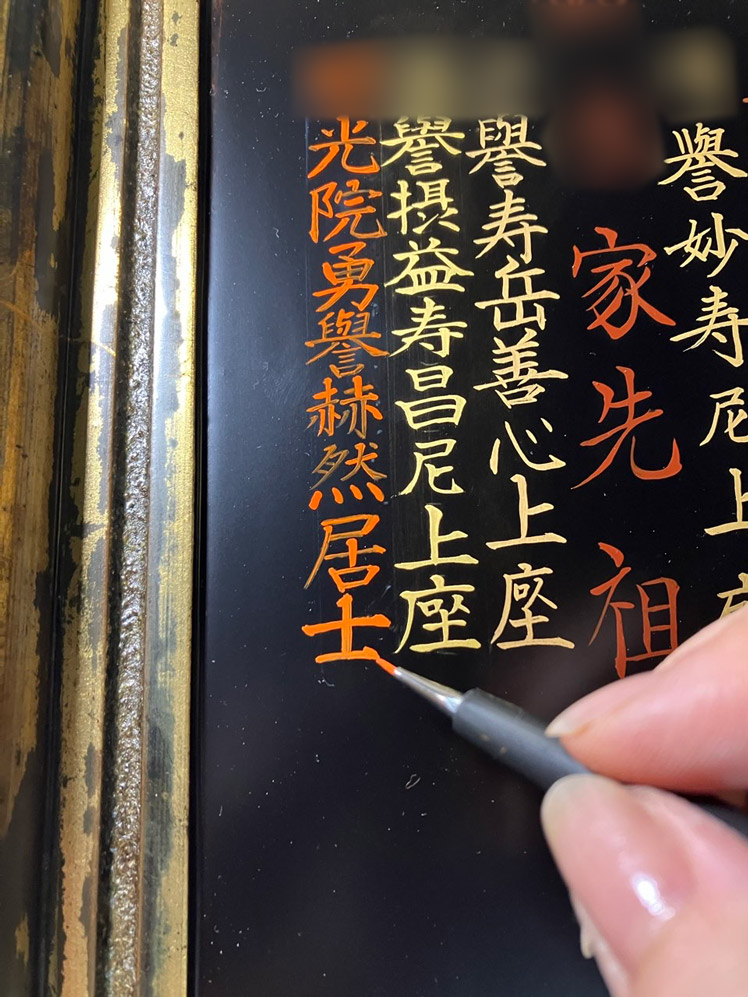 譽妙寿尼上座
家先祖
譽寿岳善心上座
譽摂益寿昌尼上座
光院勇譽赫然居士